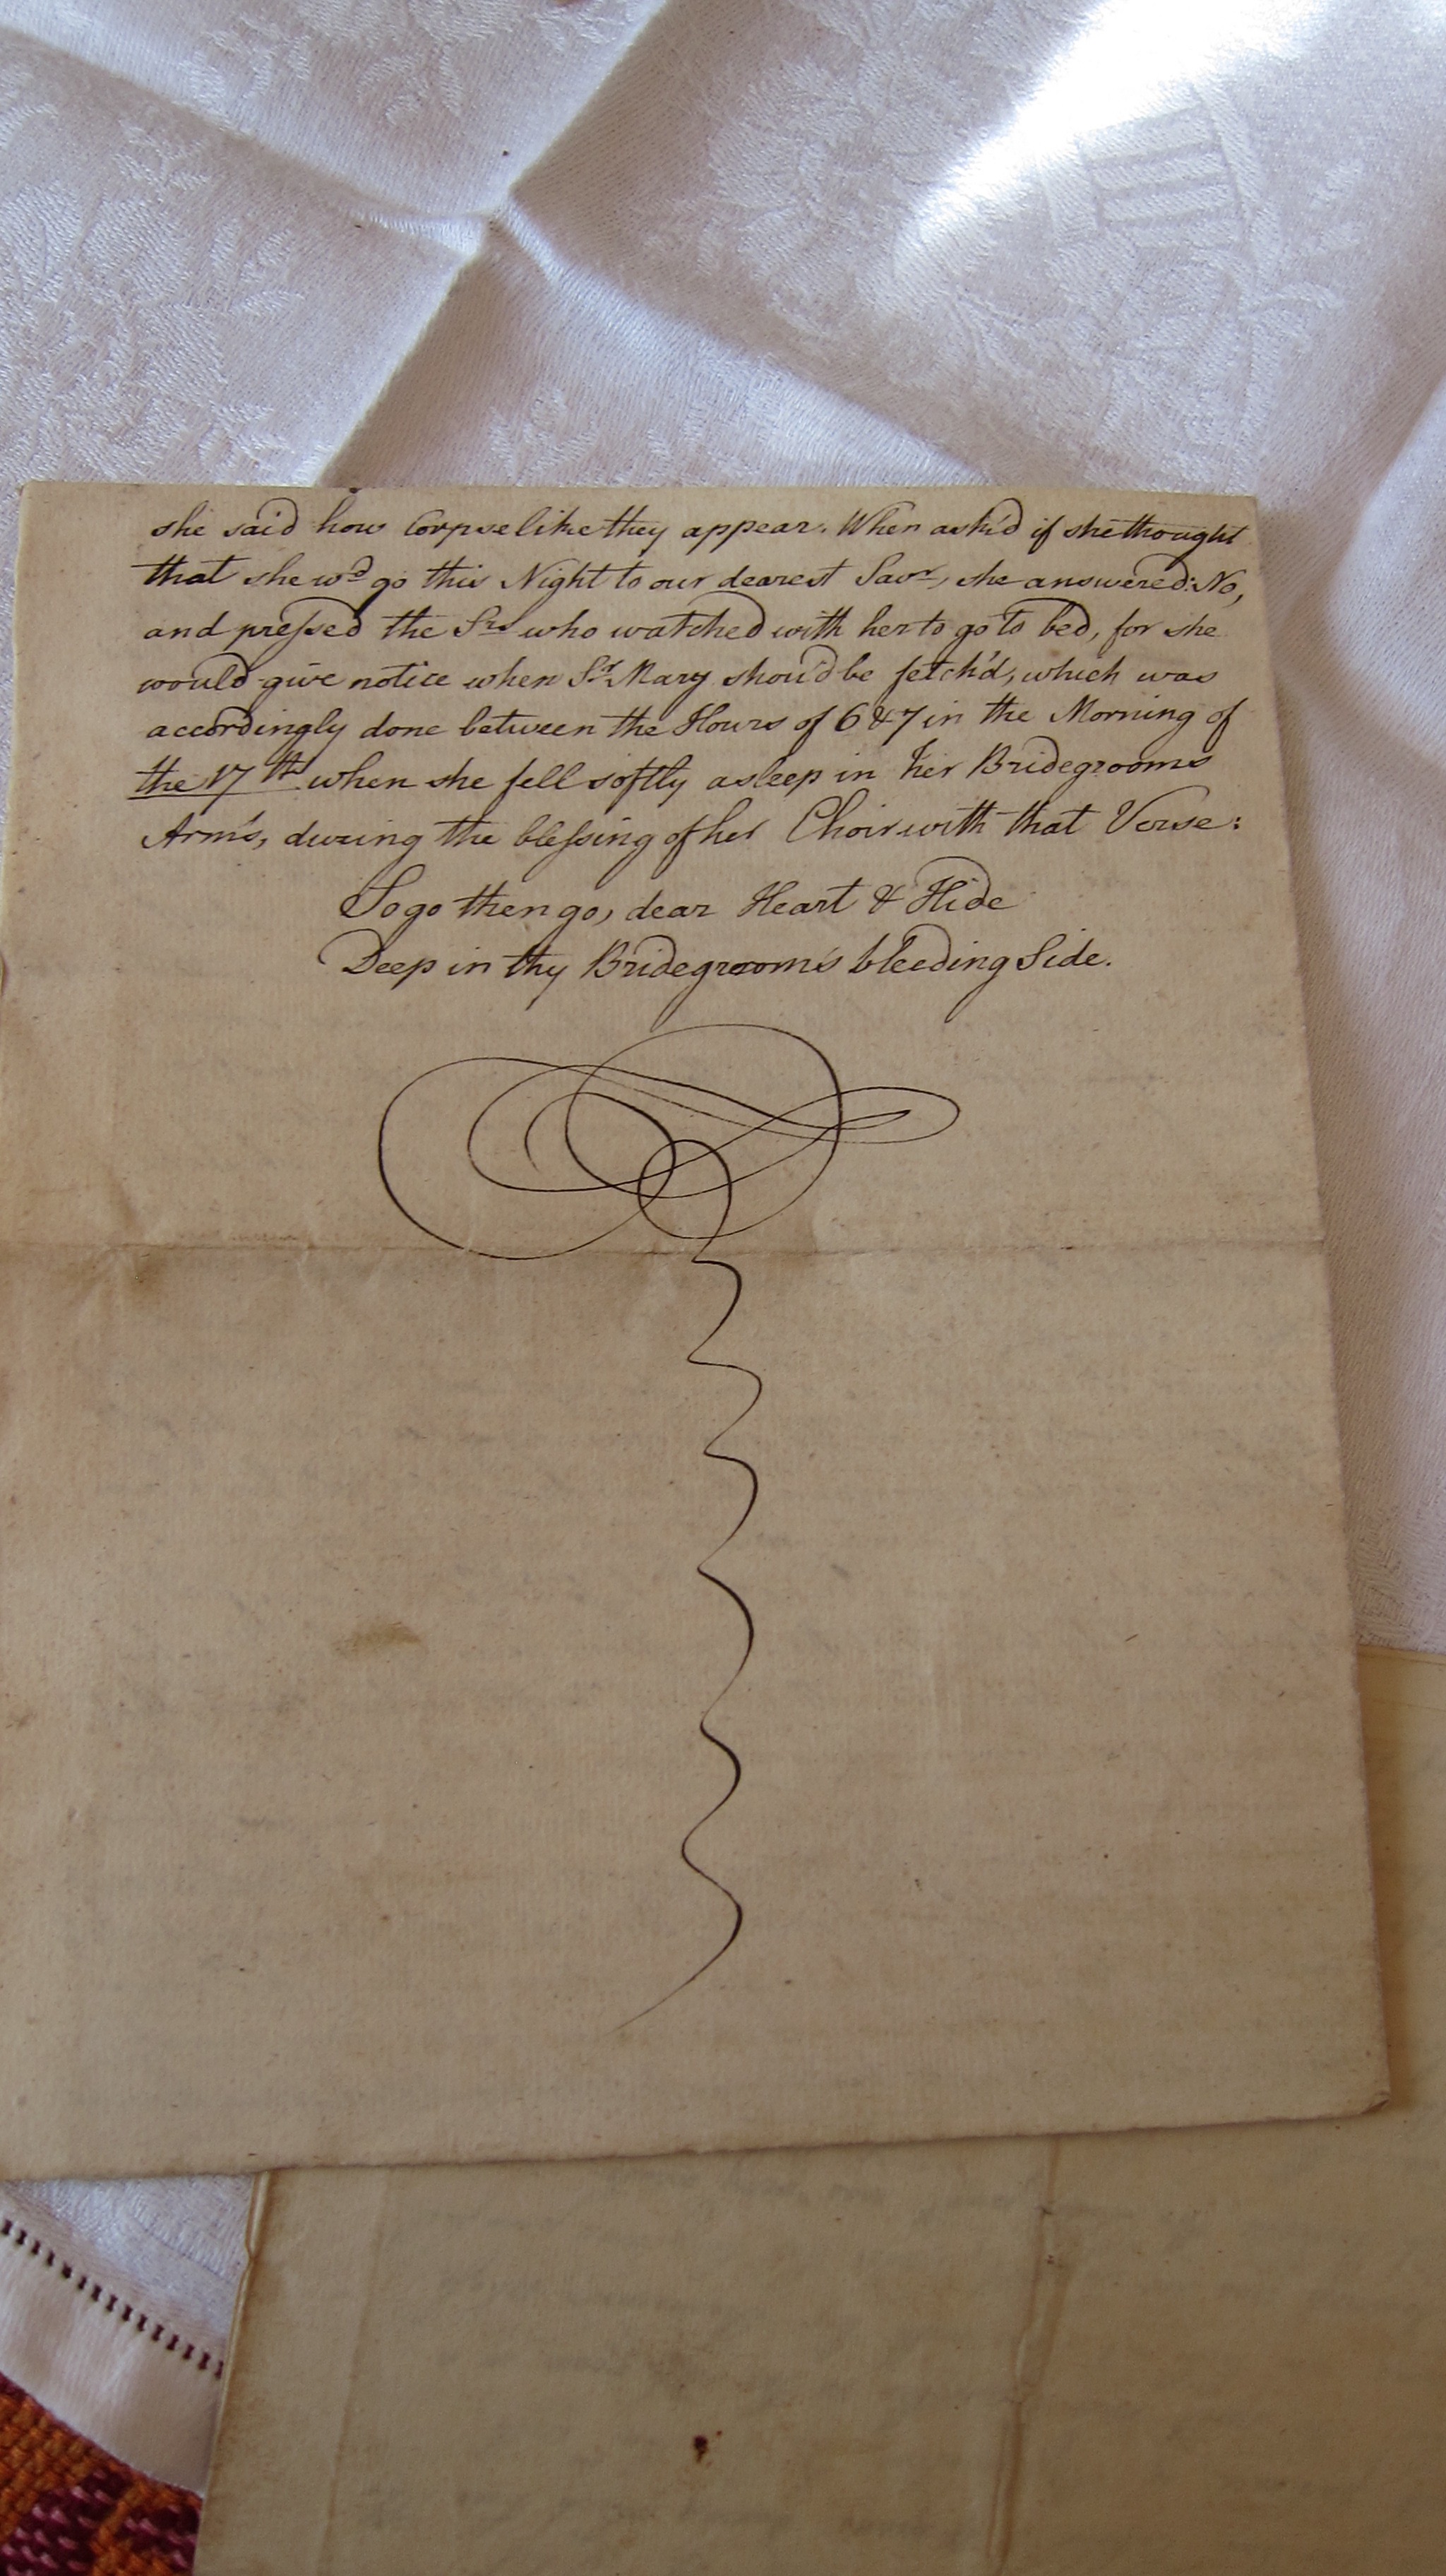 she said how Corpselike they appear. When ask'd if she thought
that she wd go this Night to our dearest Savr, she answered: No,
and pressed the Srs who watched with her to go to bed, for she
would give notice when Sr Mary shou'd be fetch'd, which was
accordingly done between the Hours of 6 & 7 in the Morning of
the 17th when she fell softly asleep in her Bridegrooms
Arm's, during the blessing of her Choir with that Verse:
So go then go, dear Heart & Hide
Deep in thy Bridegroom's bleeding Side.